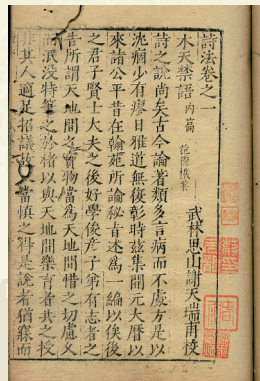 詩法卷之一
木天禁語 內篇 范德機著
武林思山謝天瑞甫校
詩之說尚矣古今論著類多言病而不處方是以
沈痼少有瘳日雅道無復彰時茲集開元大曆以
來諸公平昔在翰苑所論秘旨述爲一編以俟後
之君子賢士大夫之後好學俊彥子弟有志者之
告所謂天地間之寶物當爲天地間惜之切慮又
而泯没特筆之於楮以與天地間樂育者共之授
非其人適足招議故又當慎之得是說者猶寐而